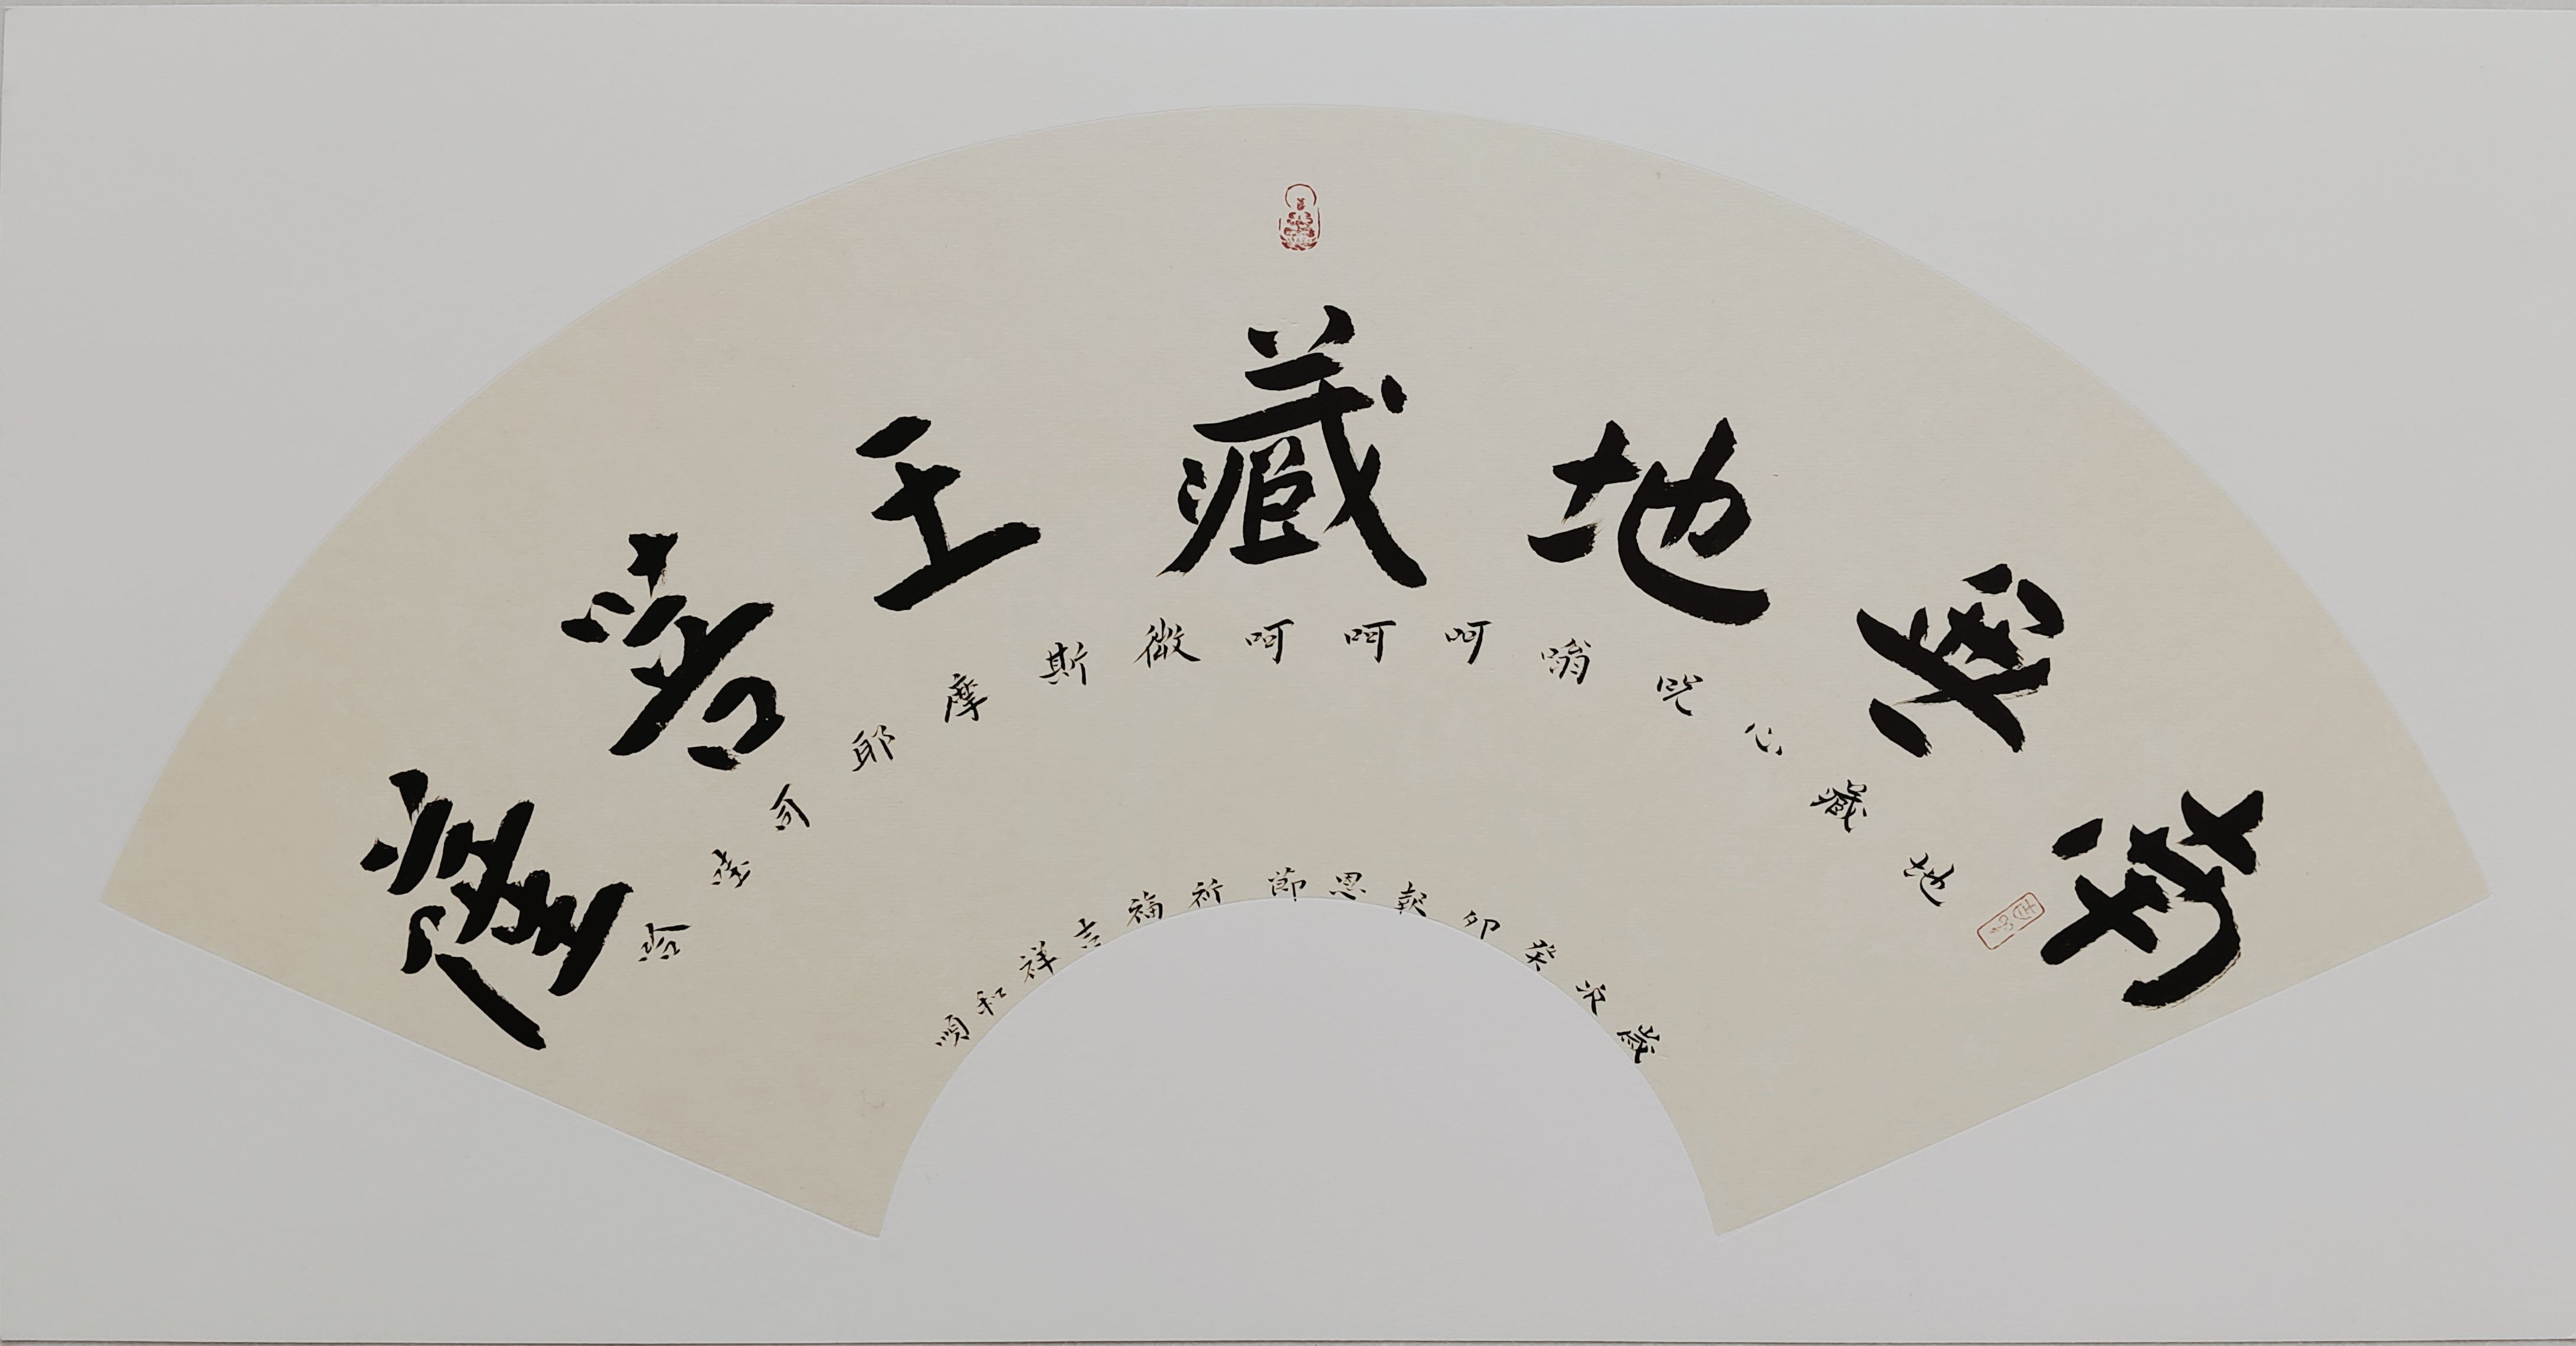 南無地藏王菩薩
地藏心咒嗡呵呵呵微斯摩耶司唵唅
歲次癸卯報恩節祈福吉祥和順